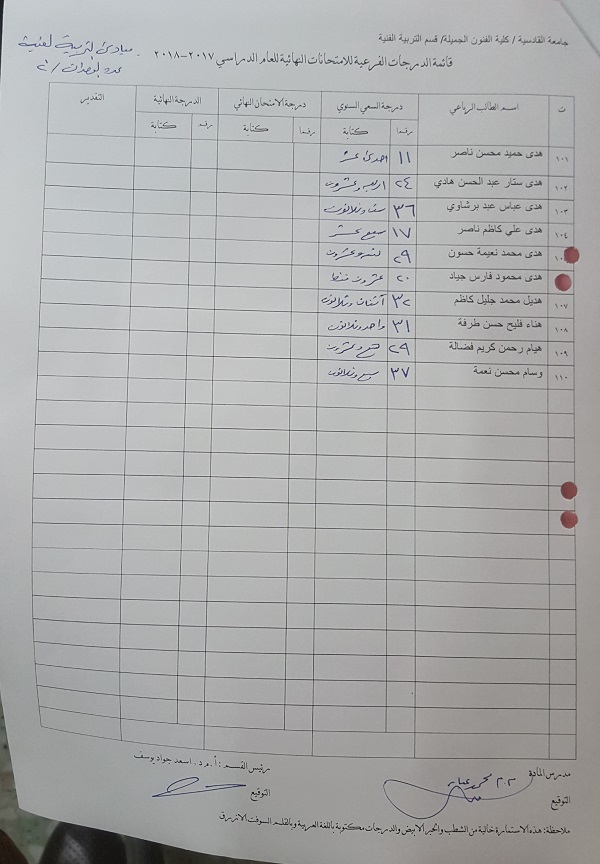 جامعة القادسية / كلية الفنون الجميلة/ قسم التربية الفنية
قائمة الدرجات الفرعية للامتحانات النهائية للعام الدراسي ٢٠١٧-٢٠١٨
مبادئ التربية الفنية
عدد الوحدات /٢
ت اسم الطالب الرباعي درجة السعي السنوي درجة الامتحان النهائي الدرجة النهائية التقدير
رقما كتابة رقما كتابة رقما كتابة
١٠١ هدى حميد محسن ناصر ١١ احدى عشر
١٠٢ هدى ستار عبد الحسن هادي ٢٤ اربع وعشرون
١٠٣ هدى عباس عبد برشاوي ٣٦ ست وثلاثون
١٠٤ هدى علي كاظم ناصر ١٧ سبع عشر
هدى محمد نعيمة حسون ٢٩ وعشرون
هدى محمود فارس جياد ٢٠ عشرون فقط
١٠٧ هديل محمد جليل كاظم ٣٢ وثلاثون
١٠٨ هناء فليح حسن طرفة ٣١ واحد وثلاثون
١٠٩ هيام رحمن كريم فضالة ٢٩ تسع وعشرون
١١٠ وسام محسن نعمة ٣٧ سبع وثلاثون
مدرس المادة
م.م
التوقيع
رئيس القسم : أ.م.د. اسعد جواد يوسف
التوقيع
ملاحظة: هذه الاستمارة خالية من الشطب والحبر الابيض والدرجات مكتوبة باللغة العربية وبالقلم السوفت الازرق